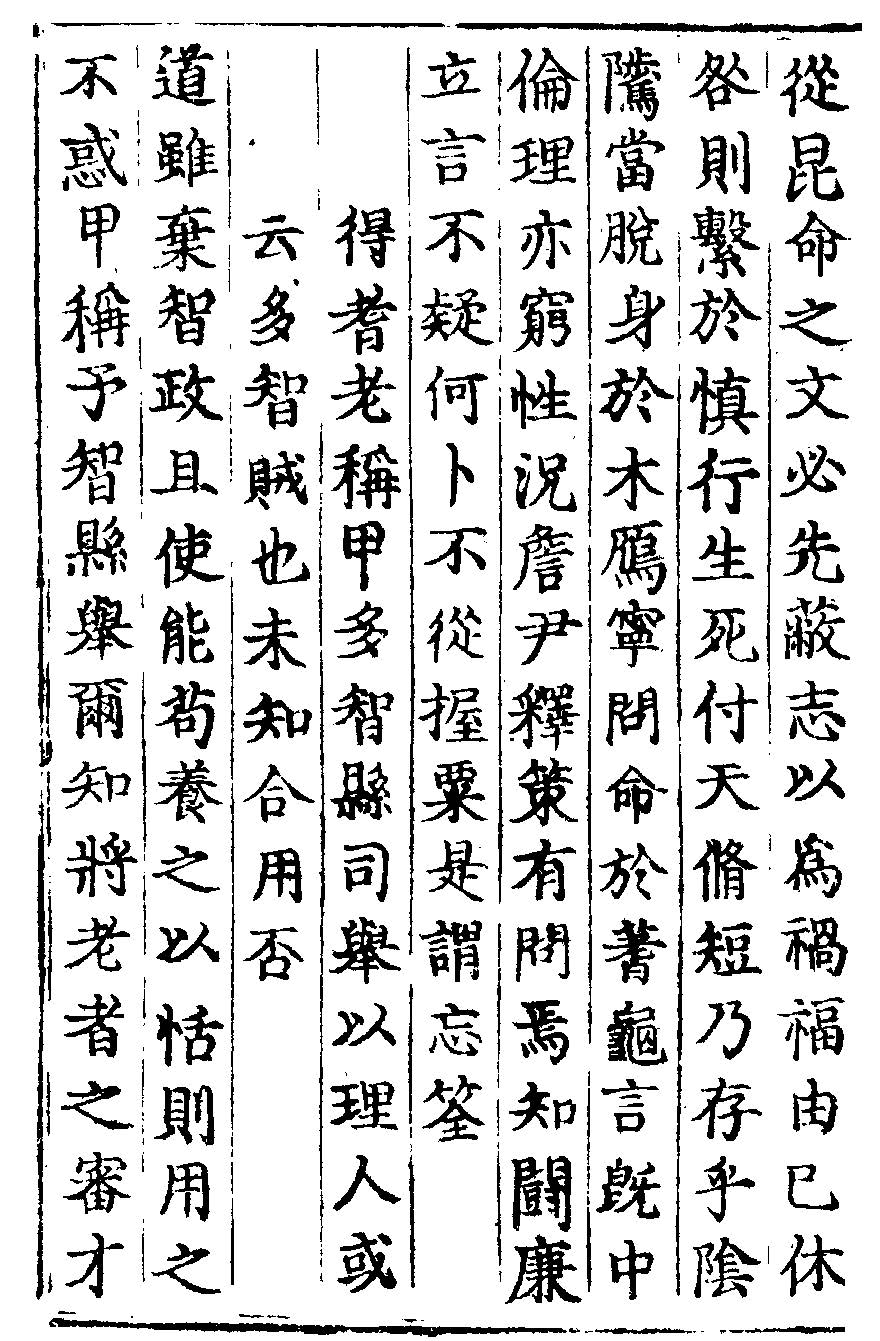 從昆命之文必先蔽志以為禍福由已休
咎則繫於慎行生死付天脩短乃存乎陰
隲當脫身於木鴈寧問命於蓍龜言旣中
倫理亦窮性況詹尹釋策有問焉知鬪廉
立言不疑何卜不從握粟是謂忘筌
得耆老稱甲多智縣司舉以理人或
云多智賊也未知合用否
道雖棄智政且使能茍養之以恬則用之
不惑甲稱予智縣舉爾知將老者之審才